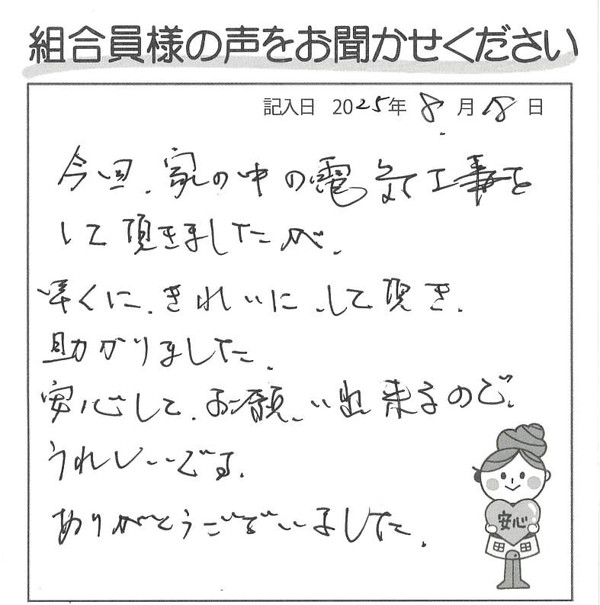 組合員様の声をお聞かせください
記入日 2025年 8月18日
今回、家の中の電気工事を
して頂きましたが、
早くに、きれいにして頂き、
助かりました。
安心して、お願い出来るので、
うれしいです。
ありがとうございました。
安心